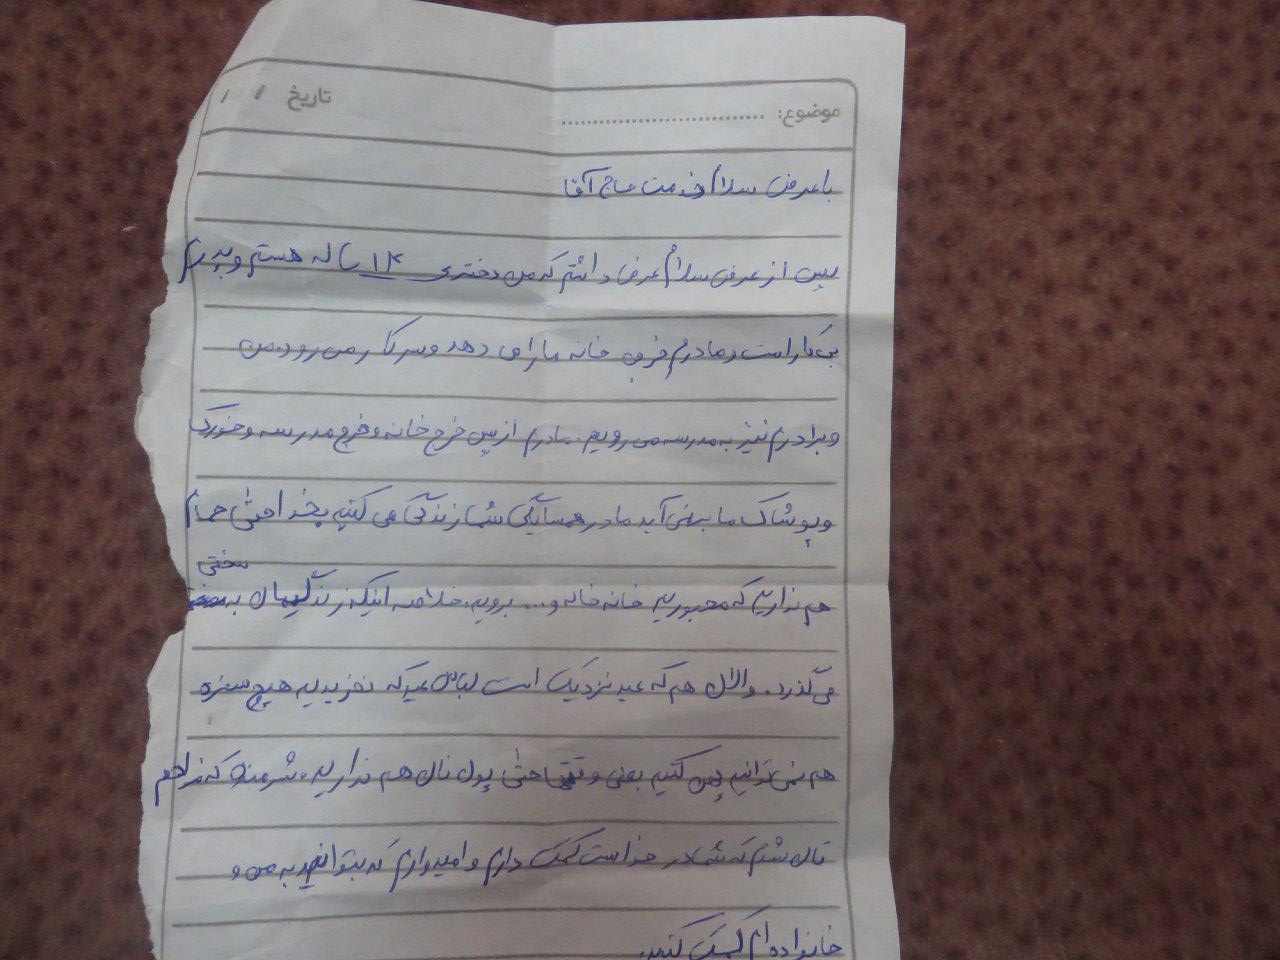 موضوع: ........................... تاریخ / /
با عرض سلام خدمت حاج آقا
پس از عرض سلام عرض داشتم که من دختری ۱۴ ساله هستم و پدرم
بی کار است و مادرم خرج خانه ما را می دهد و سر کار می رود. من
و برادرم نیز به مدرسه می رویم. مادرم از پس خرج خانه و خرج مدرسه و خوراک
و پوشاک ما برنمی آید. ما در همسایگی شما زندگی می کنیم بخدا حتی حمام
هم نداریم که مجبوریم خانه خاله و... برویم. خلاصه اینکه زندگیمان به سختی
می گذرد. و الان هم که عید نزدیک است لباس عید که نخریدیم هیچ سفره
هم نمی توانیم پهن کنیم یعنی وقتها حتی پول نان هم نداریم. شرمنده که مزاحم
تان شدم که شما در خواست کمک دارم و امیدوارم که بتوانید به من و
خانواده ام کمک کنید.